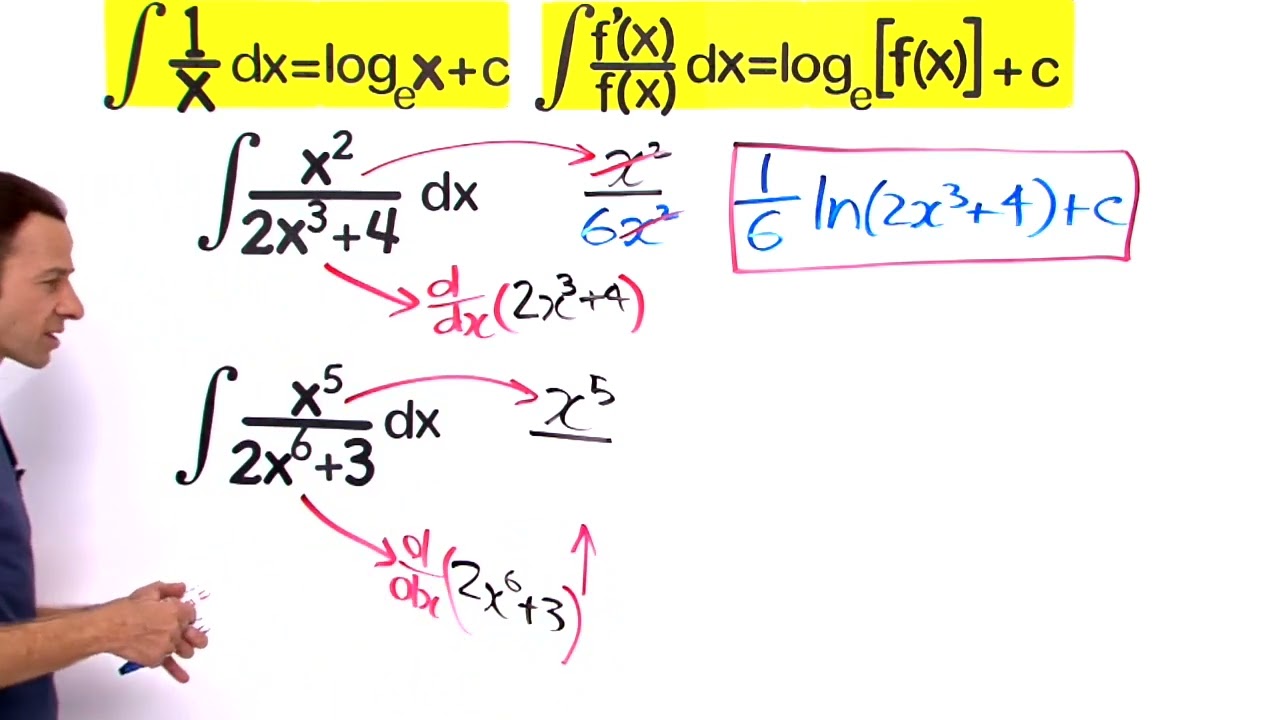 ∫ 1/x dx=logₑx+c ∫ f'(x)/f(x) dx=logₑ[f(x)]+c
∫ x²/(2x³+4) dx x²/6x² 1/6 ln(2x³+4)+c
d/dx(2x³+4)
∫ x⁵/(2x⁶+3) dx x⁵
d/dx(2x⁶+3)